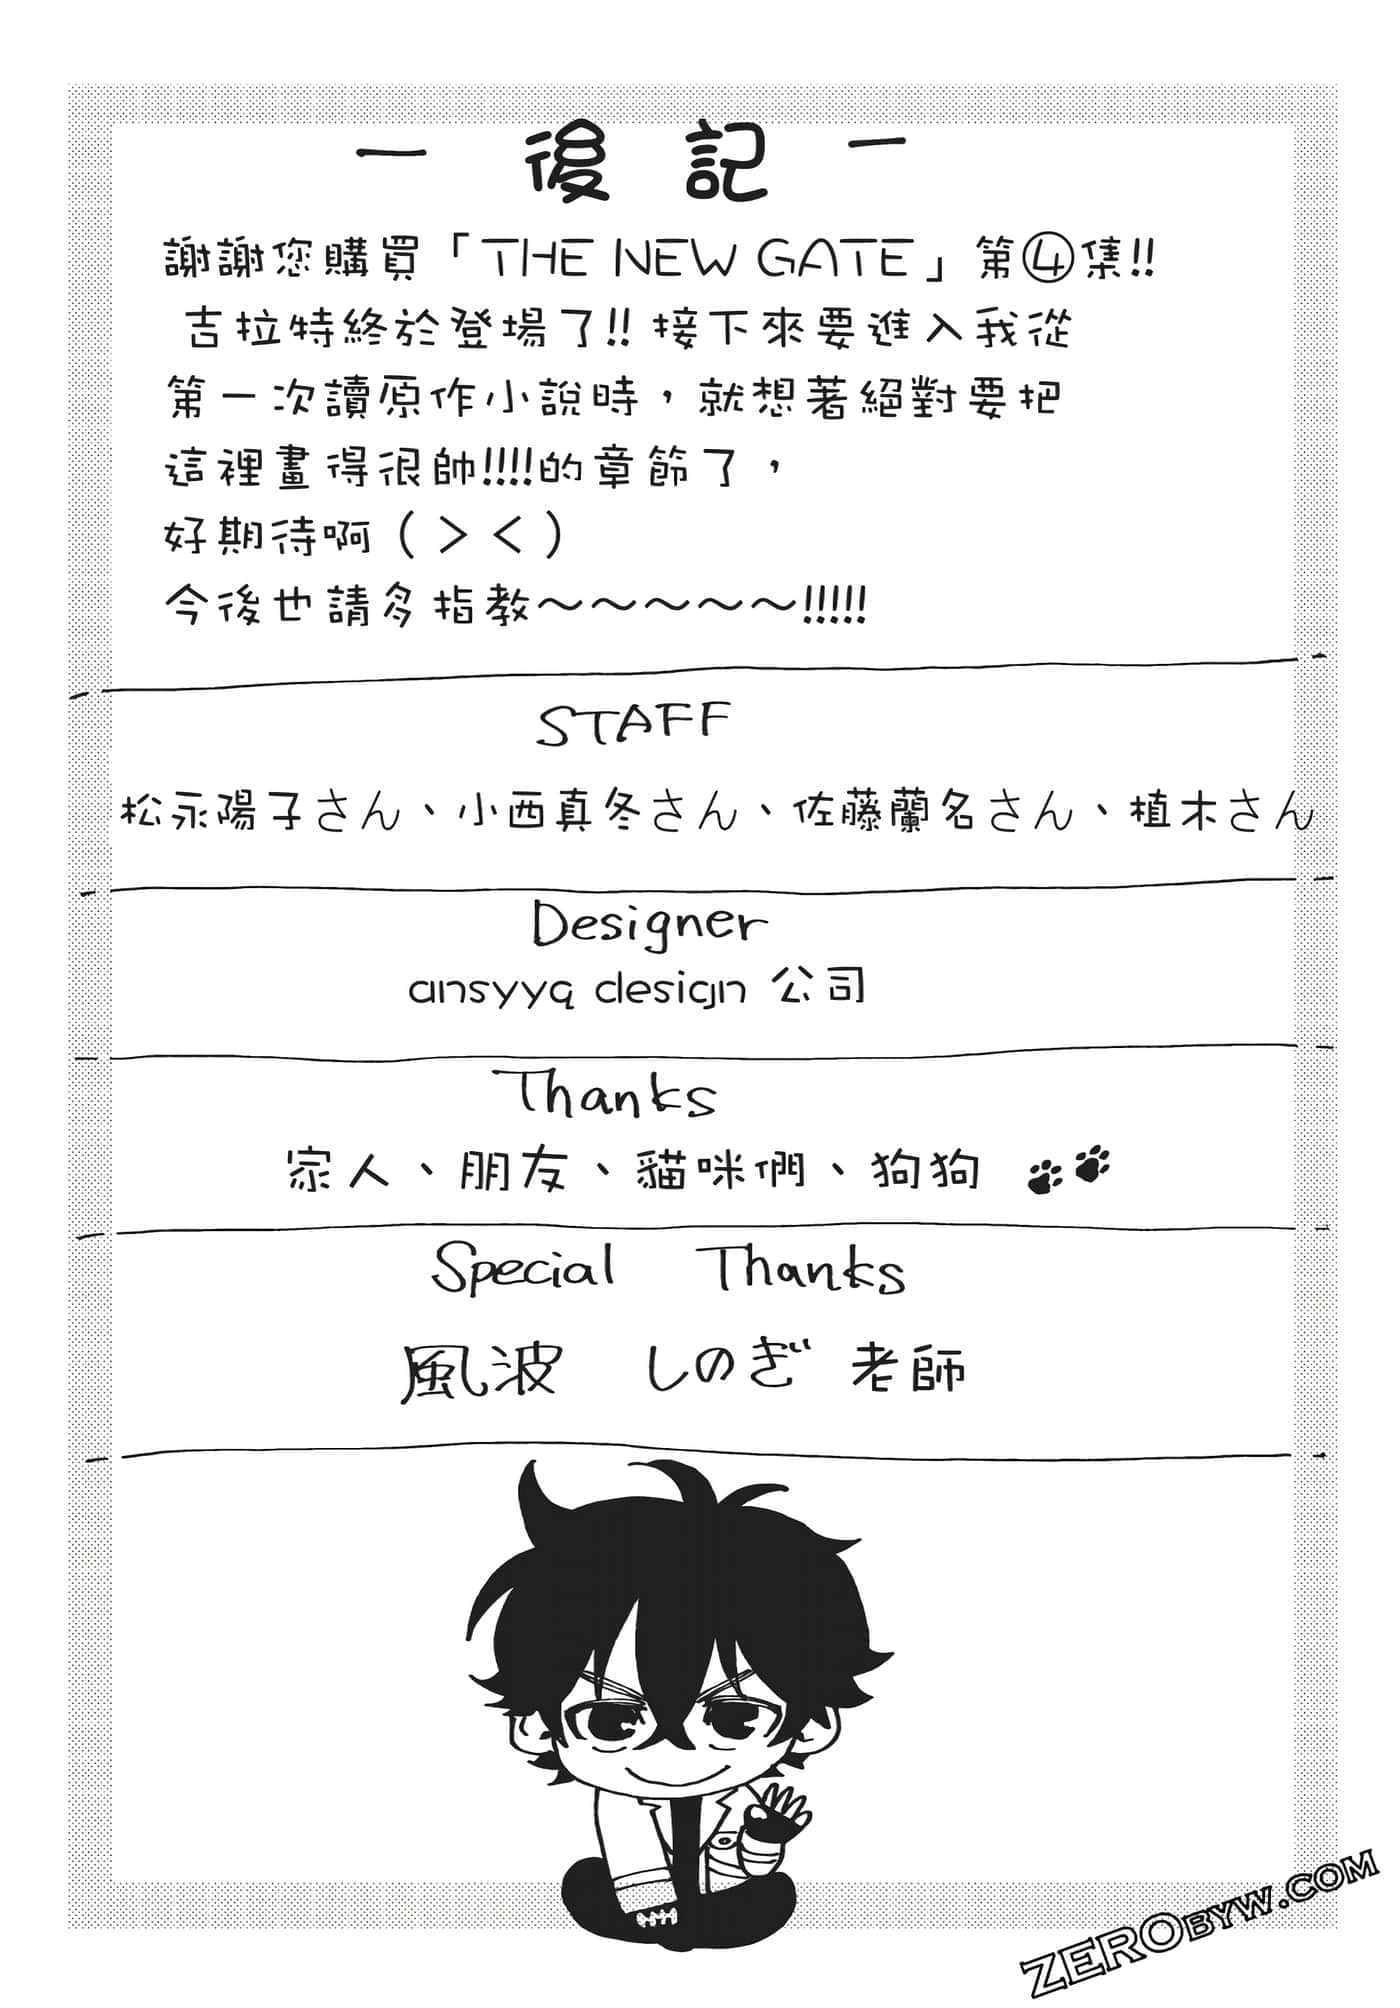 － 後 記 －
謝謝您購買「THE NEW GATE」第④集!!
吉拉特終於登場了!! 接下來要進入我從
第一次讀原作小說時，就想著絕對要把
這裡畫得很帥!!!!的章節了，
好期待啊（＞＜）
今後也請多指教～～～～～!!!!!
STAFF
松永陽子さん、小西真冬さん、佐藤蘭名さん、植木さん
Designer
ansyyq design 公司
Thanks
家人、朋友、貓咪們、狗狗
Special Thanks
風波 しのぎ 老師
ZEROBYW.COM